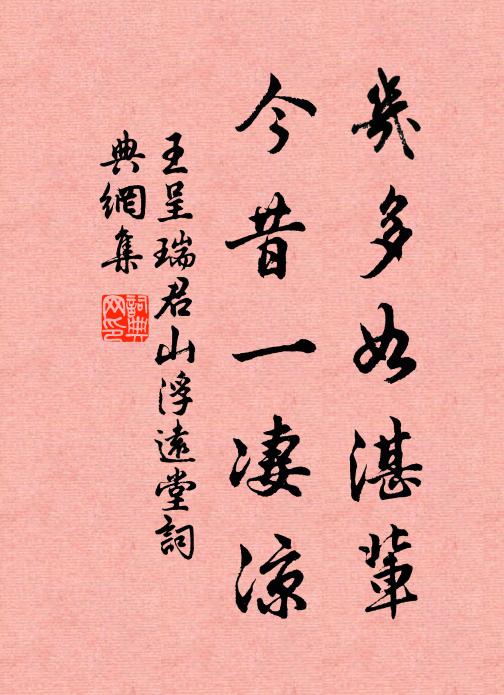 幾多如湛輩
今昔一凄涼
王呈瑞君山浮遠堂詞
典網集
詞典網印